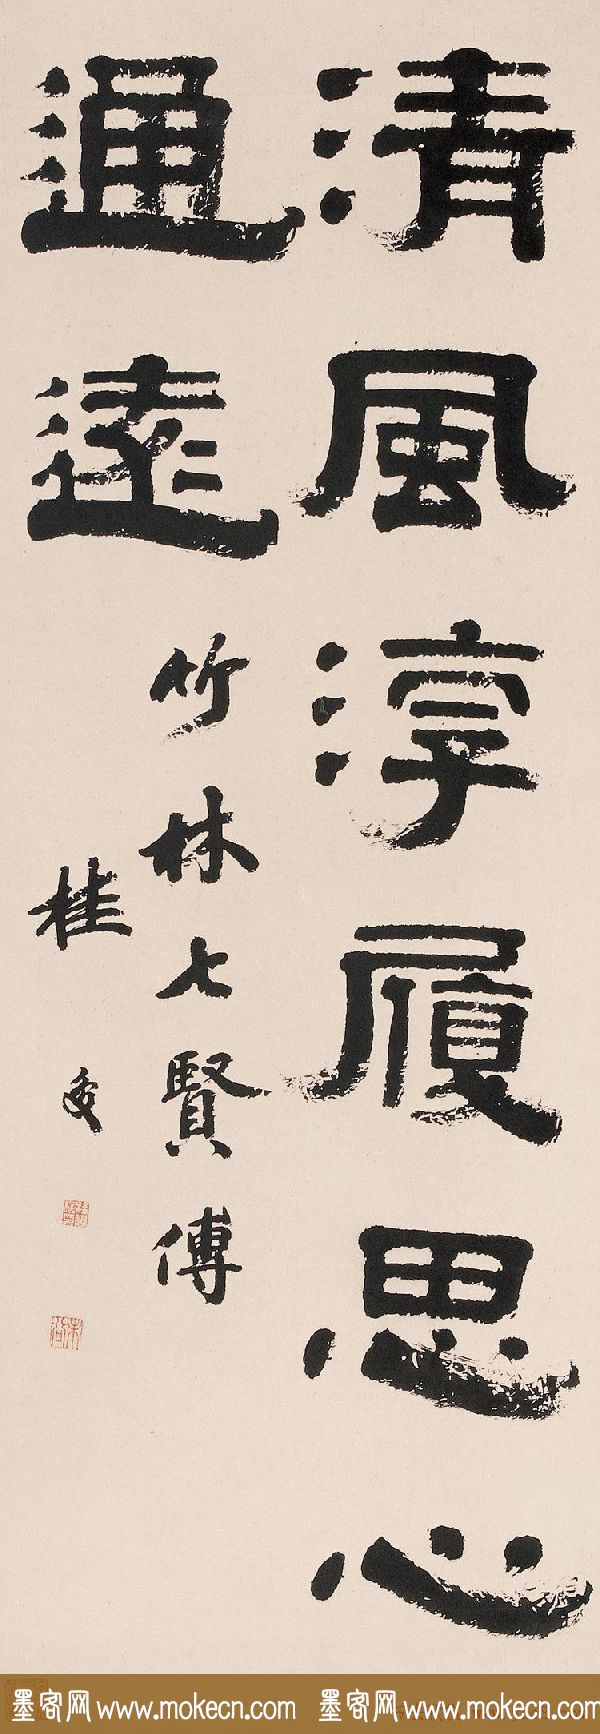 清風淳履思心
通遠
竹林七賢傳
桂馥
墨客网 www.mokecn.com 墨客网 www.mokecn.com